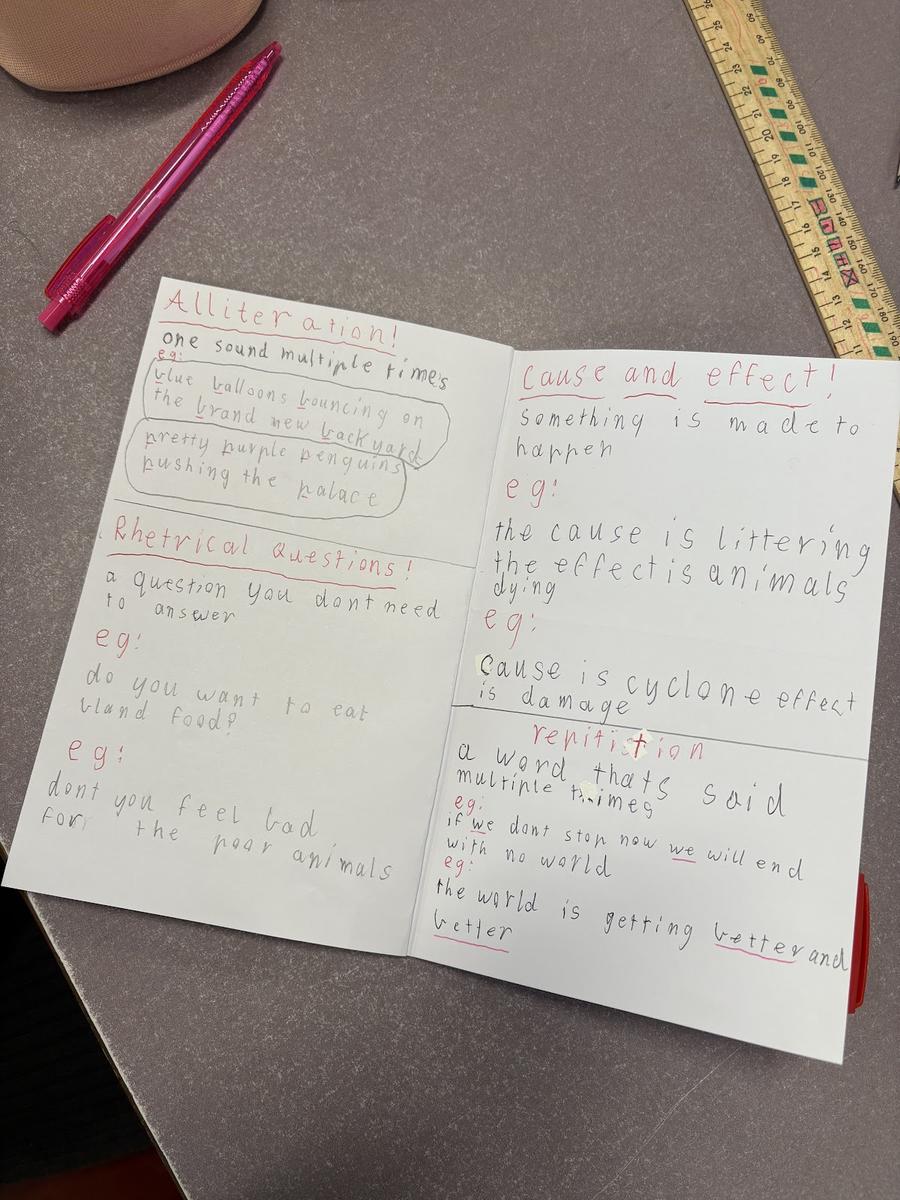 Alliteration!
one sound multiple times
eg:
blue balloons bouncing on
the brand new backyard
pretty purple penguins
pushing the palace
Rhetrical Questions!
a question you dont need
to answer
eg:
do you want to eat
bland food?
eg:
dont you feel bad
for the poor animals
cause and effect!
something is made to
happen
eg:
the cause is littering
the effect is animals
dying
eg:
Cause is cyclone effect
is damage
repitition
a word thats said
multiple times
eg:
if we dont stop now we will end
with no world
eg:
the world is getting better and
better